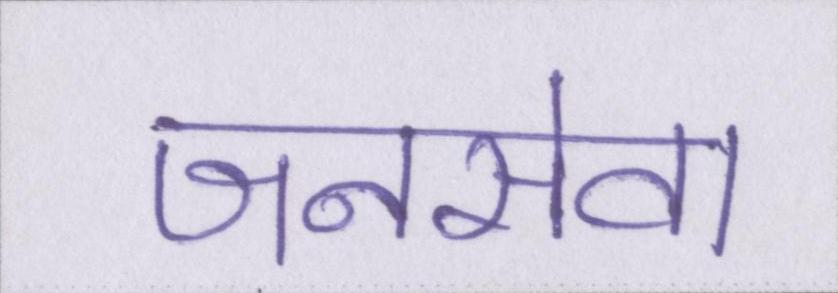 जनसेवा